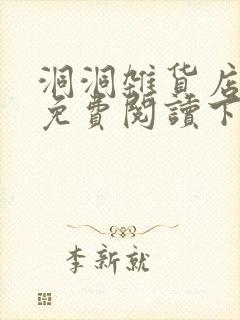 洞洞雜貨店
免費閱讀下
李新就